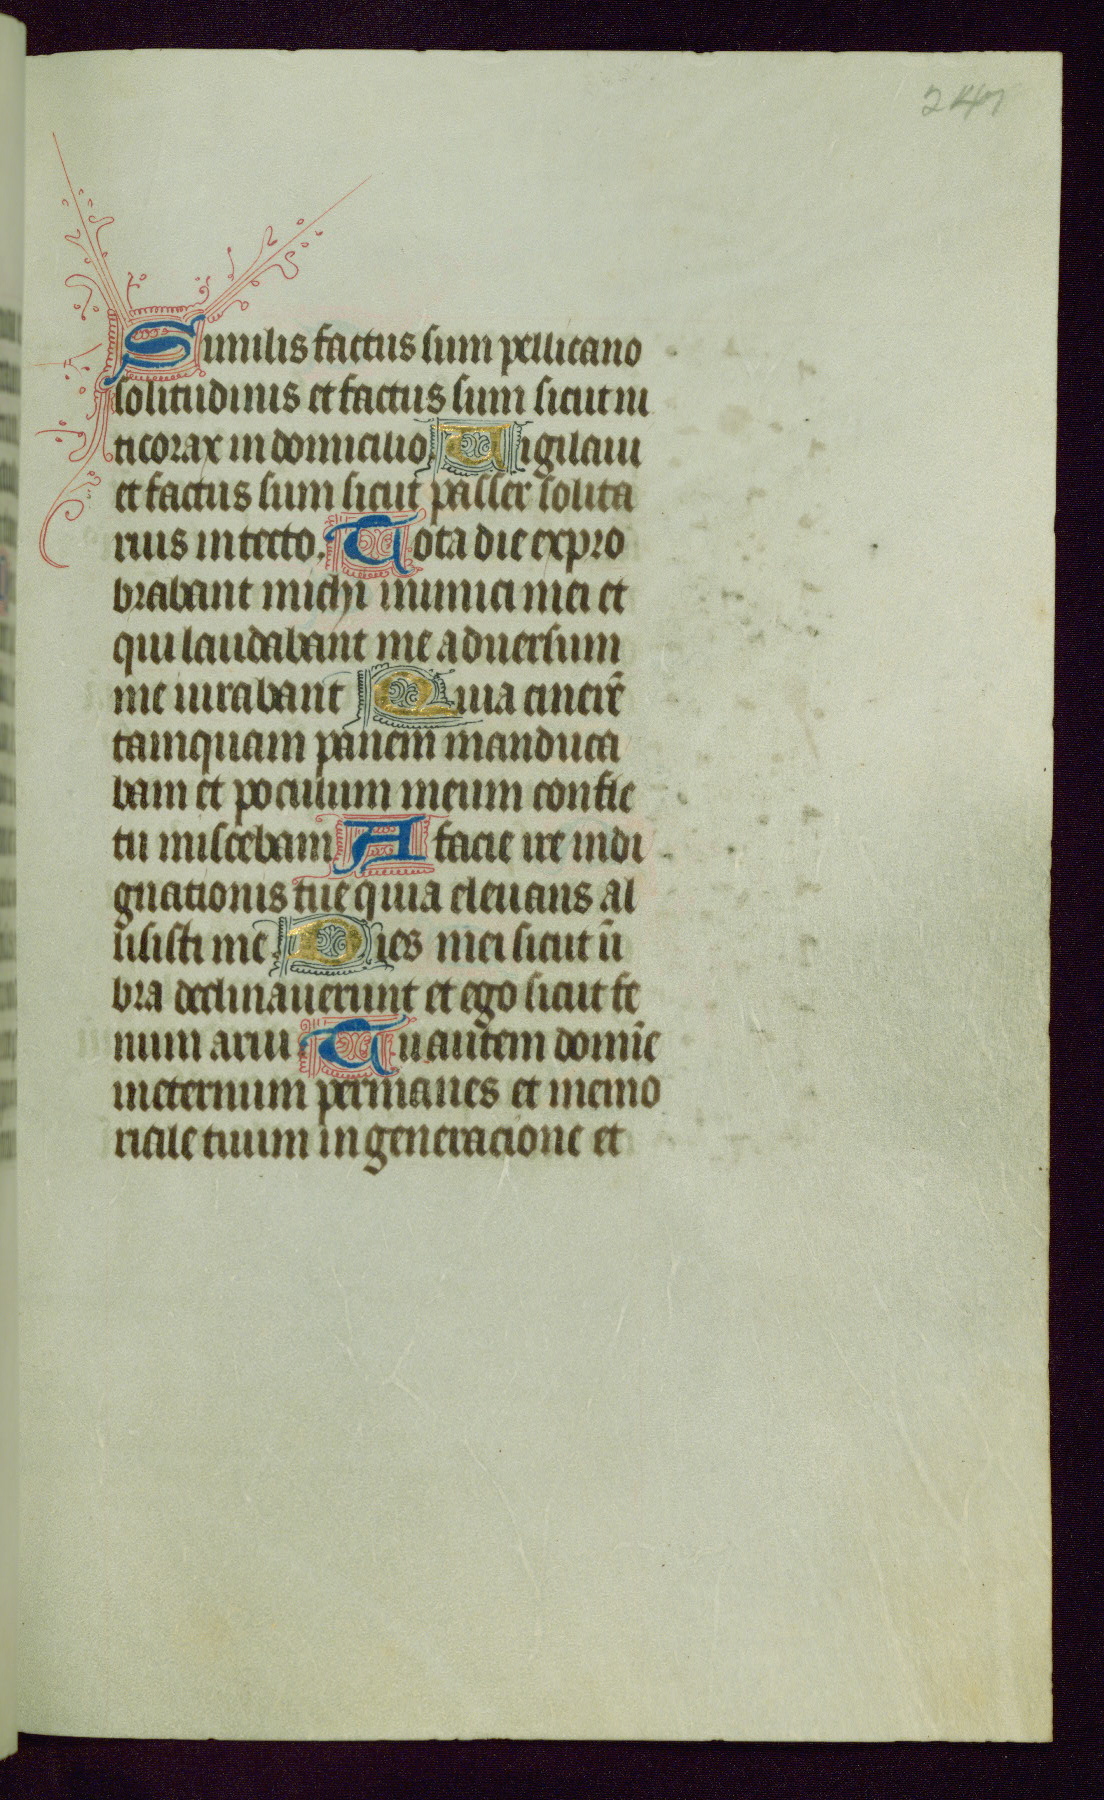 247
Similis factus sum pellicano
solitudinis et factus sum sicut ni
ticorax in domicilio Uigilaui
et factus sum sicut passer solita
rius in tecto. Tota die expro
brabant michi inimici mei et
qui laudabant me aduersum
me iurabant Quia cinerē
tamquam panem manduca
bam et poculum meum cum fle
tu miscebam A facie ire indi
gnationis tue quia eleuans al
lisisti me Dies mei sicut ū
bra declinauerunt et ego sicut fe
num arui Tu autem domīe
ineternum permanes et memo
riale tuum in generacione et